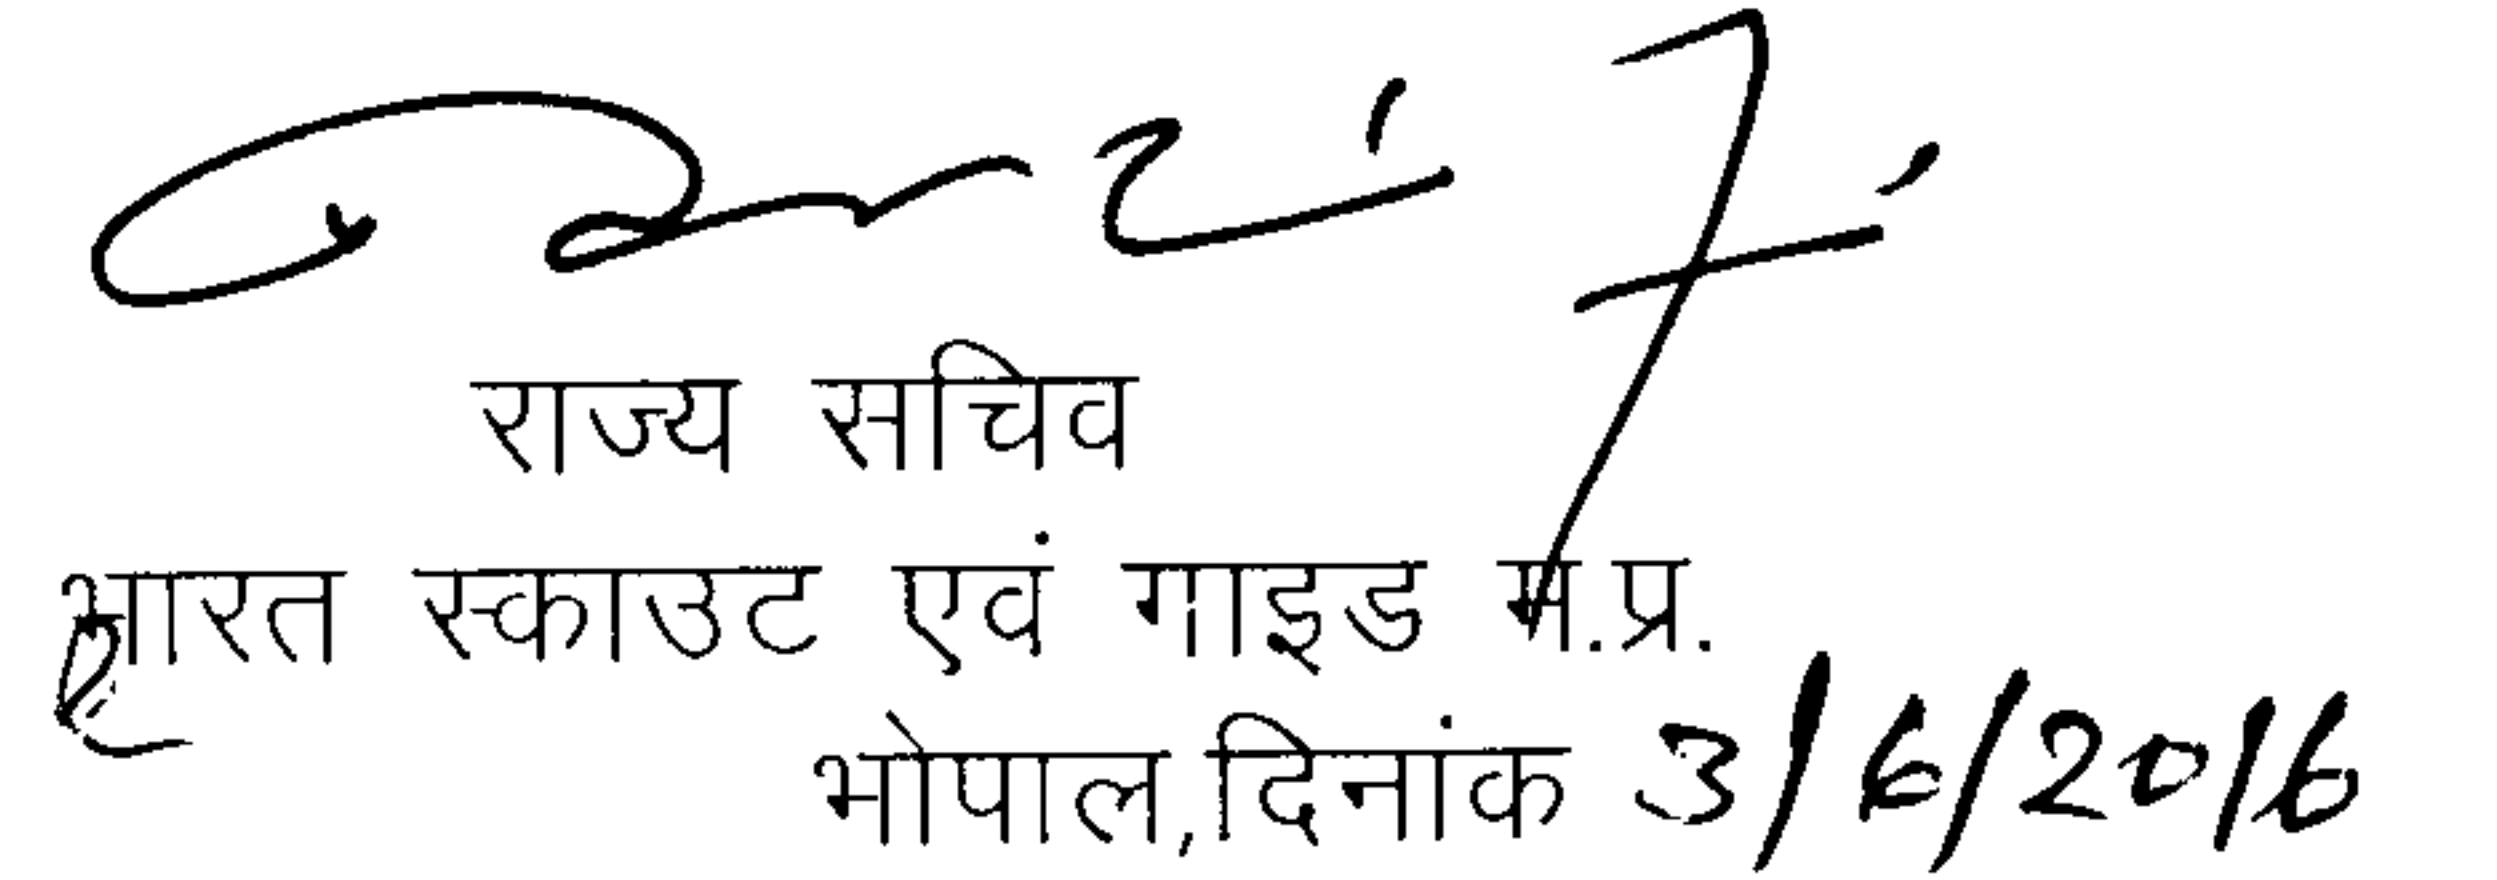 राज्य सचिव
भारत स्काउट एवं गाइड म.प्र.
भोपाल,दिनांक 3/6/2016